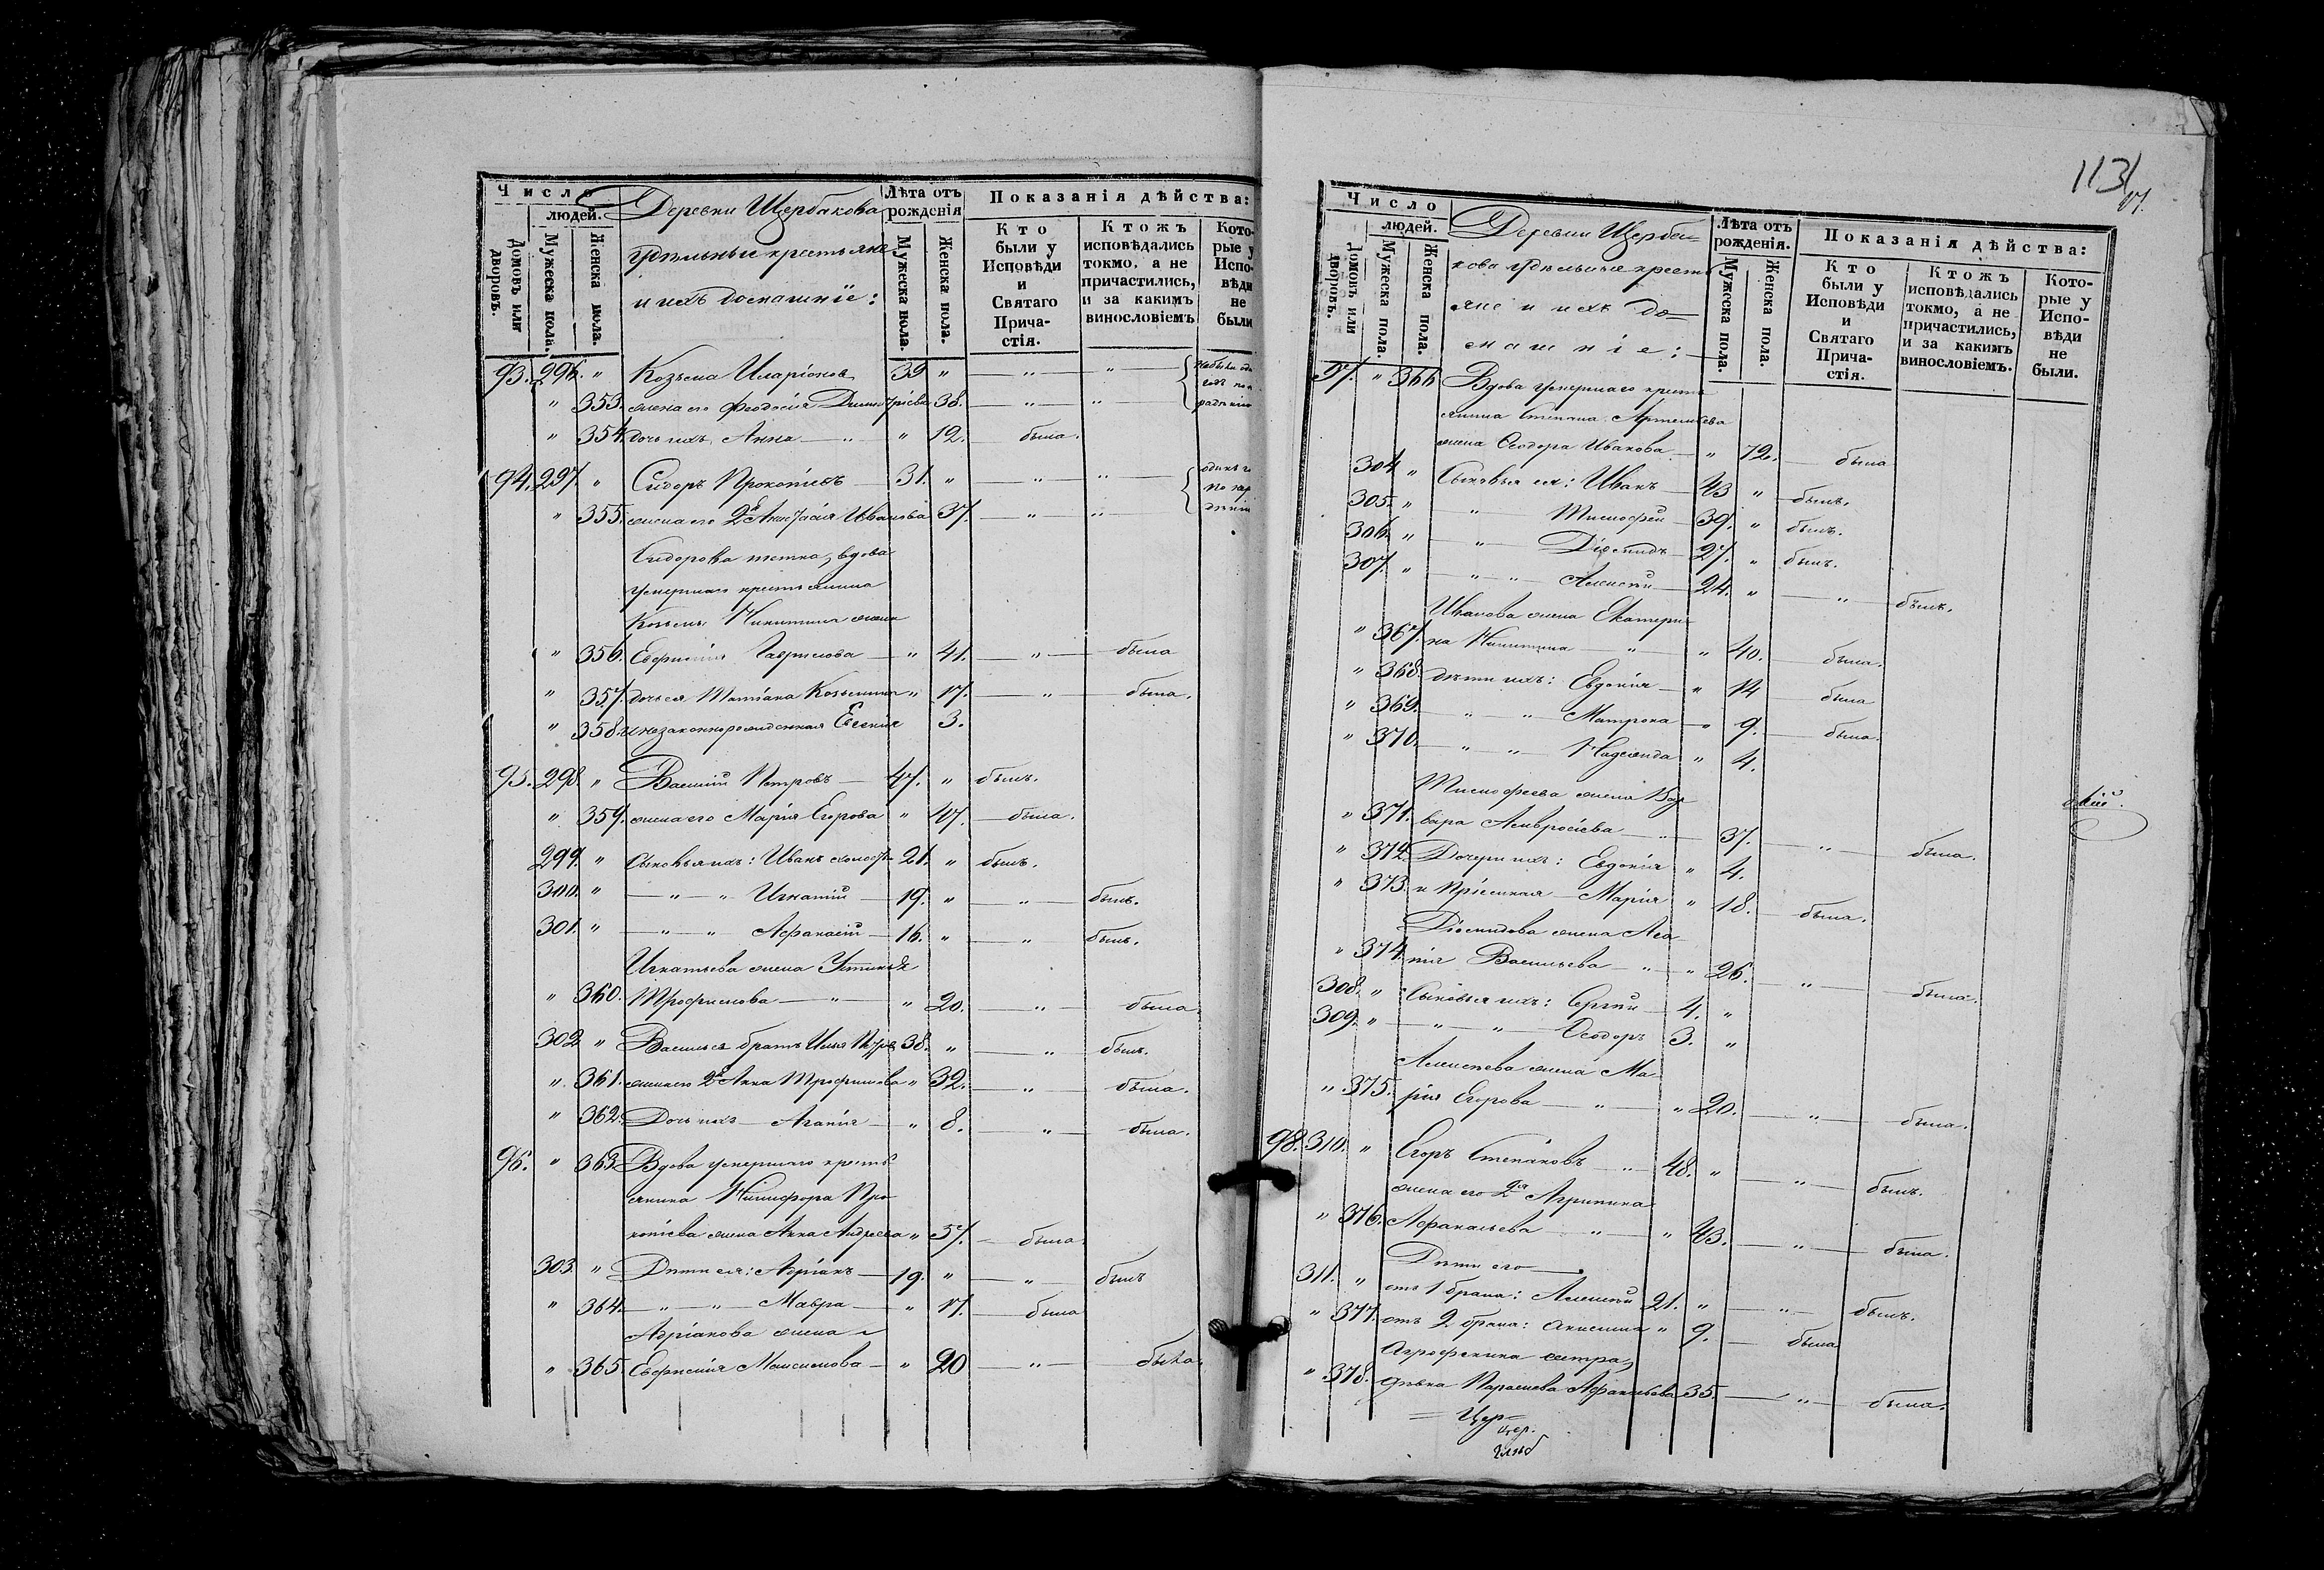 Число
людей.
Домовъ или дворовъ.
Мужеска пола.
Женска пола.
Деревни Щербакова
удѣльные крестьяне
и ихъ домашніе:
Лѣта отъ рожденія
Мужеска пола.
Женска пола.
Показанія дѣйства:
Кто были у Исповѣди и Святаго Прича-стія.
Ктожъ исповѣдались токмо, а не причастились, и за какимъ винословіемъ
Кото-рые у Испо-вѣди не были
93. 296. " Козьма Иларіоновъ 39 " " "
" 353. жена его Феодосія Димитріева 38. " "
" 354. дочь ихъ Анна " " 12. была.
94. 297. " Сидоръ Прокопіевъ 31. " " "
" 355. жена его 2я Анастасія Иванова 37. " "
Сидорова тетка, вдова
умершаго крестьянина
Козьмы Никитина жена
" 356. Евфимія Гаврилова " 41. " была
" 357. дочь ея Татіана Козьмина " 17. " была.
" 358. и незаконнорожденная Евгенія 3.
95. 298. " Василій Петровъ 47. " былъ.
" 359. жена его Марія Егорова " 47. была.
299. " Сыновья ихъ: Иванъ холостъ 21. " былъ.
300. " " " Игнатій 19. " " былъ.
301. " " " Афанасій 16. " " былъ.
Игнатьева жена Устинья
" 360. Трофимова " " 20. " была
302 " Васильев братъ Илья Петров 38. " " былъ.
" 361. жена его 2я Анна Трофимова " 32. " была.
" 362. Дочь ихъ Агапія " 8. " была.
96. " 363. Вдова умершаго кресть
янина Никифора Про
копіева жена Анна Андреева " 57. была
303. " Дѣти ея: Адріанъ 19. " " былъ
" 364. " " Мавра " 17. была
Адріанова жена
" 365. Евфимія Максимова " 20 " была.
113
Число
людей.
Домовъ или дворовъ.
Мужеска пола.
Женска пола.
Деревни Щерба=
кова удѣльные кресть
яне и ихъ до=
машніе:
Лѣта отъ рожденія.
Мужеска пола.
Женска пола.
Показанія дѣйства:
Кто были у Исповѣди и Святаго Прича-стія.
Ктожъ исповѣдались токмо, а не причастились, и за какимъ винословіемъ.
Кото-рые у Испо-вѣди не были.
97. " 366 Вдова умершаго кресть
янина Степана Артемьева
жена Ѳеодора Иванова " 72. была
304 " Сыновья ея: Иванъ 43 " былъ.
305. " " Тимофей 39. " былъ.
306. " " Діомидъ 27. " былъ.
307. " " " Алексѣй 24. " " былъ.
Иванова жена Екатери
" 367. на Никитина " " 40. была.
" 368. дѣти ихъ: Евдокія " 14 была
" 369. " " Матрона " 9. была.
" 370. " " Надежда " 4.
Тимофеева жена Вар
" 371. вара Амвросіева " 37. " была.
" 372. Дочери ихъ: Евдокія " 4.
" 373. и пріемная Марія " 18. была.
Діомидова жена Ага
" 374. пія Васильева " " 26. " была.
308. " Сыновья ихъ: Сергій 4. "
309. " " " Ѳеодоръ 3. "
Алексѣева жена Ма
" 375. рія Егорова " " 20. " была.
98. 310. " Егоръ Степановъ " 48. " " былъ.
жена его 2я Агрипина
" 376. Афанасьева " " 43. " была.
Дѣти его
311. " отъ 1 брака: Алексѣй 21. " " былъ.
" 377. отъ 2 брака: Анисия " 9. была
Агрофенина сестра,
" 378. дѣвка Парасковья Афанасьева 35. " была.